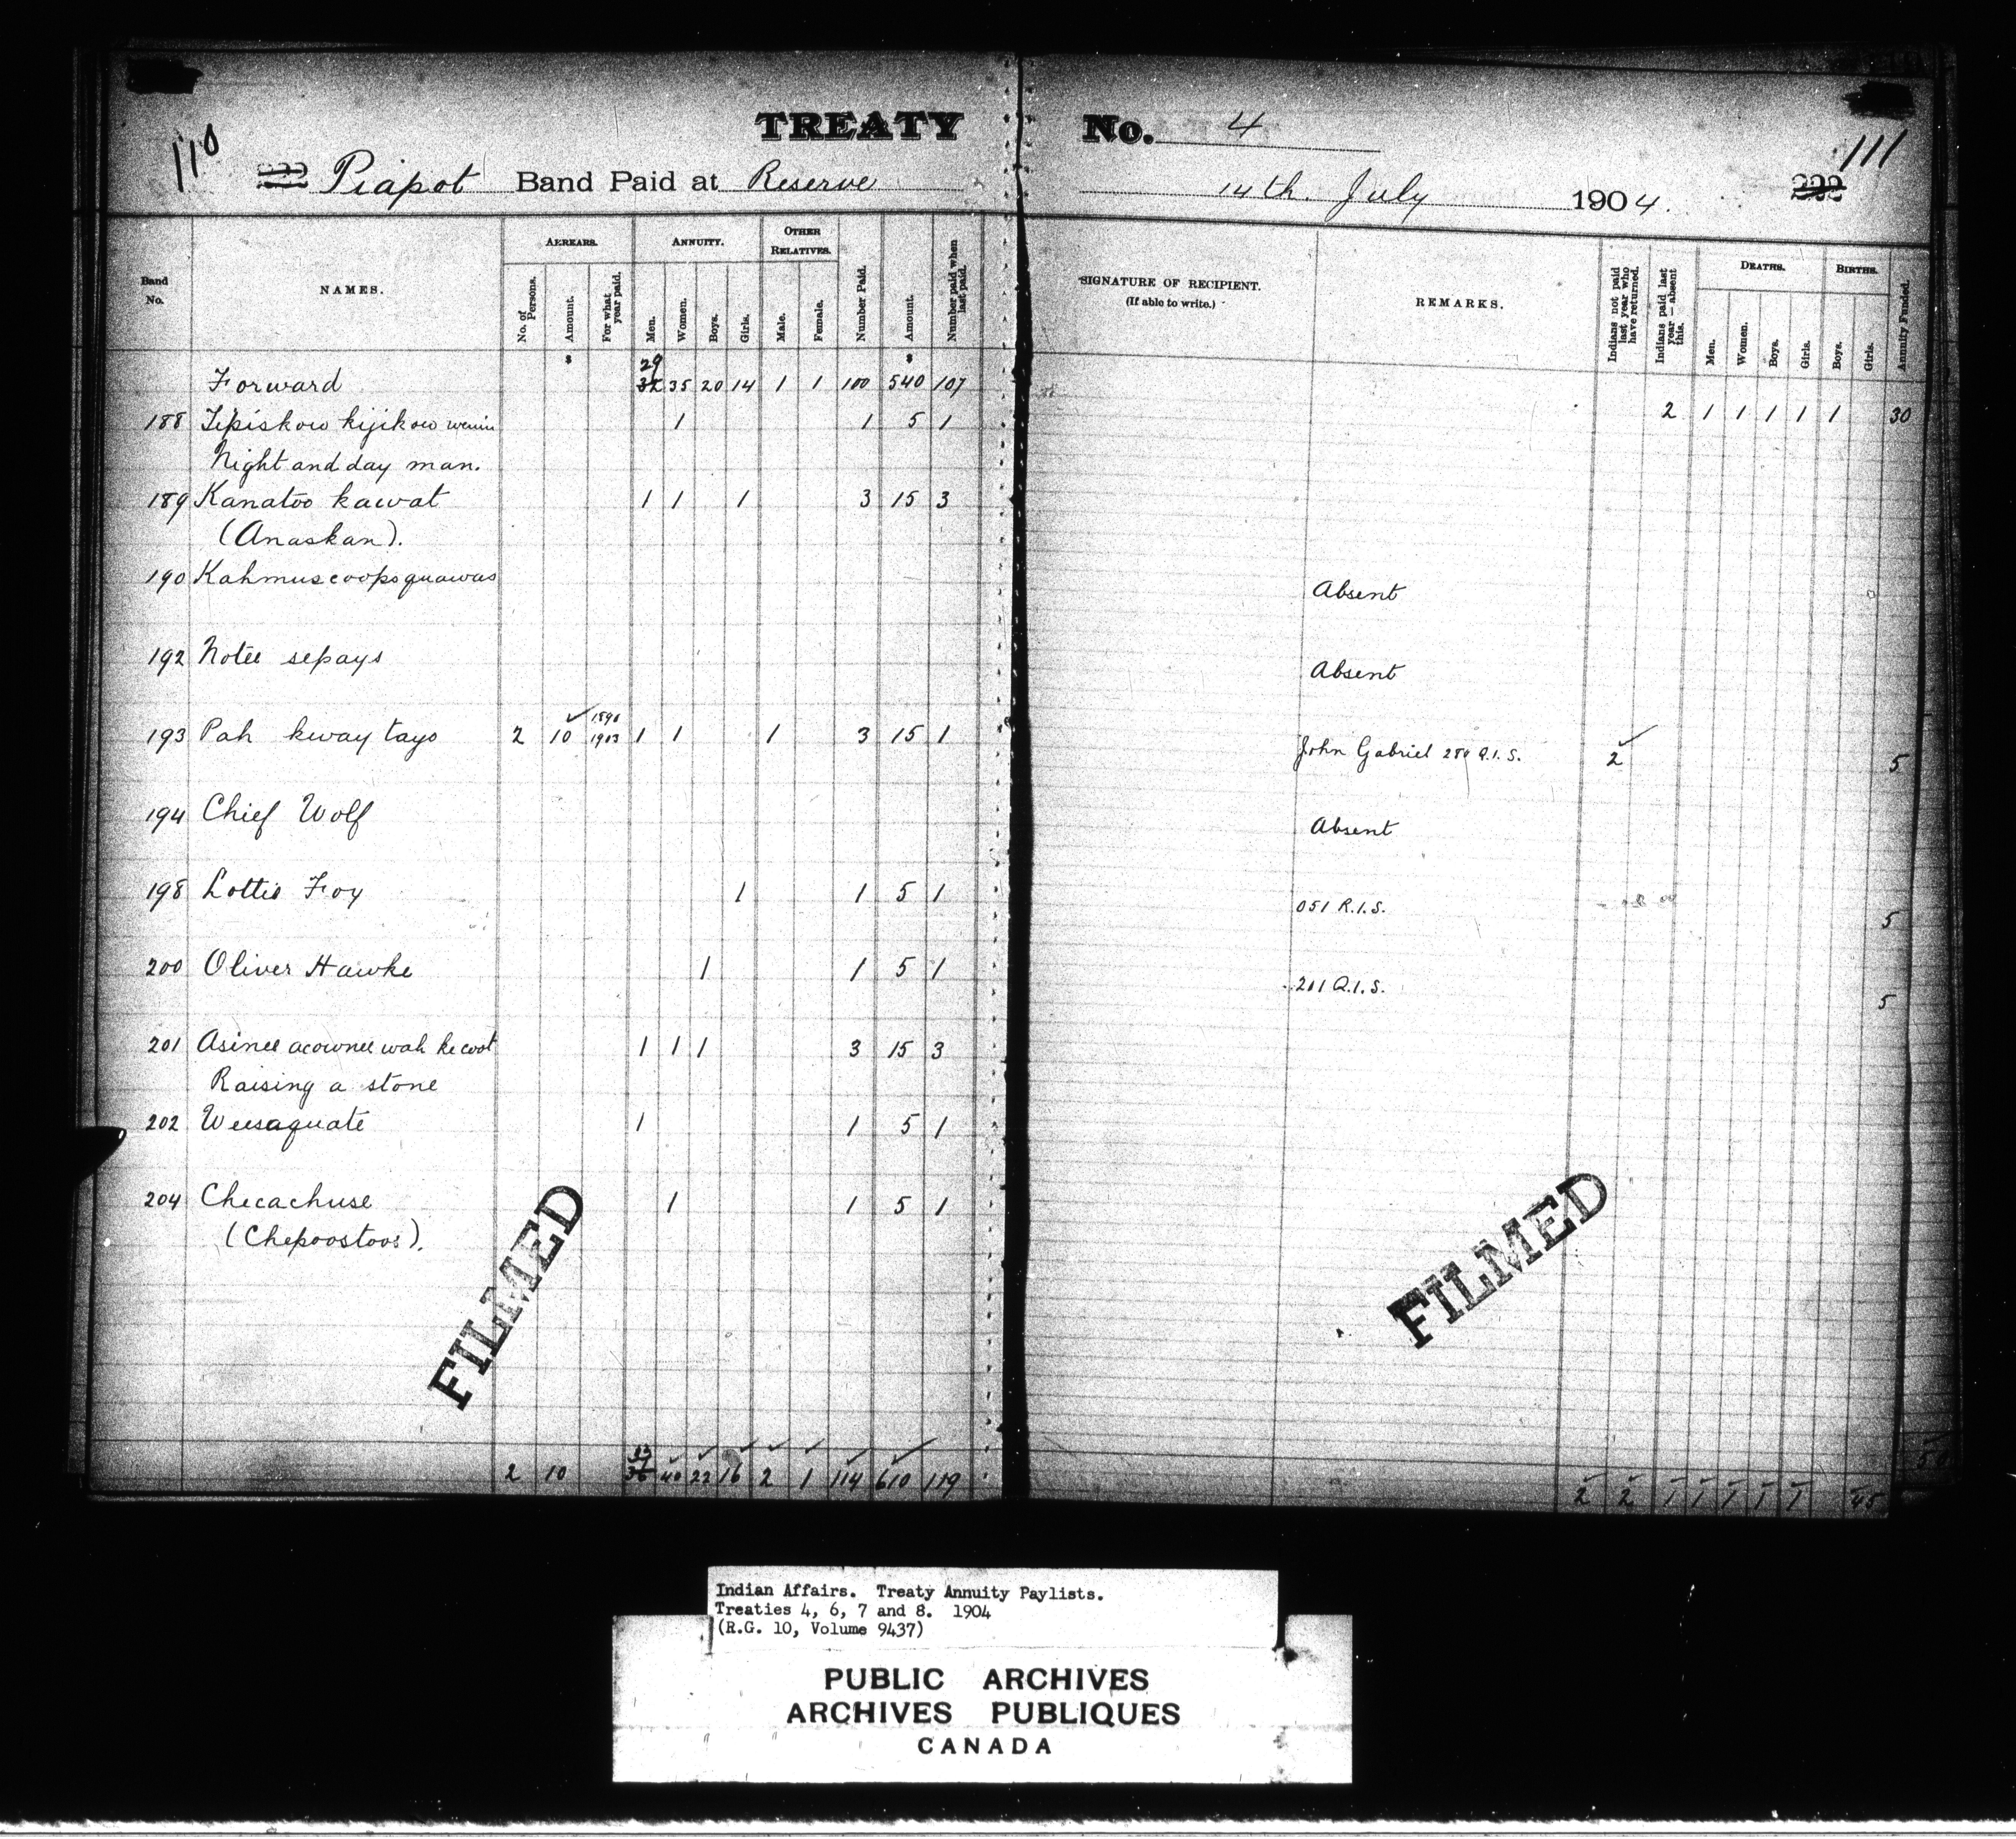 TREATY No. 4
110 111
Piapot Band Paid at Reserve 14th. July 1904.
Band No. NAMES. ARREARS. ANNUITY. OTHER RELATIVES. Number Paid. Amount. Number paid when last paid. SIGNATURE OF RECIPIENT. (If able to write.) REMARKS. Indians not paid last year who have returned. Indians paid last year — absent this. DEATHS. BIRTHS. Annuity Funded.
No. of Persons. Amount. For what year paid. Men. Women. Boys. Girls. Male. Female. Men. Women. Boys. Girls. Boys. Girls.
29
Forward 32 35 20 14 1 1 100 540 107 2 1 1 1 1 1 30
188 Tipiskow kijikow wenin 1 1 5 1
Night and day man.
189 Kanatoo kawat 1 1 1 3 15 3
(Anaskan).
190 Kahmuscoopsquawas Absent
192 Notee sepays Absent
193 Pah kway tayo 2 10 1903 1 1 1 3 15 1 John Gabriel Q.I.S. 2 5
194 Chief Wolf Absent
198 Lottie Foy 1 1 5 1 051 R.I.S. 5
200 Oliver Hawke 1 1 5 1 211 Q.I.S. 5
201 Asinee acownee wah ke coot 1 1 1 3 15 3
Raising a stone
202 Weesaquate 1 1 5 1
204 Checachuse 1 1 5 1
(Chepoostoos).
FILMED FILMED
33
2 10 36 40 22 16 2 1 114 610 119 2 2 1 1 1 1 1 45
Indian Affairs. Treaty Annuity Paylists.
Treaties 4, 6, 7 and 8. 1904
(R.G. 10, Volume 9437)
PUBLIC ARCHIVES
ARCHIVES PUBLIQUES
CANADA